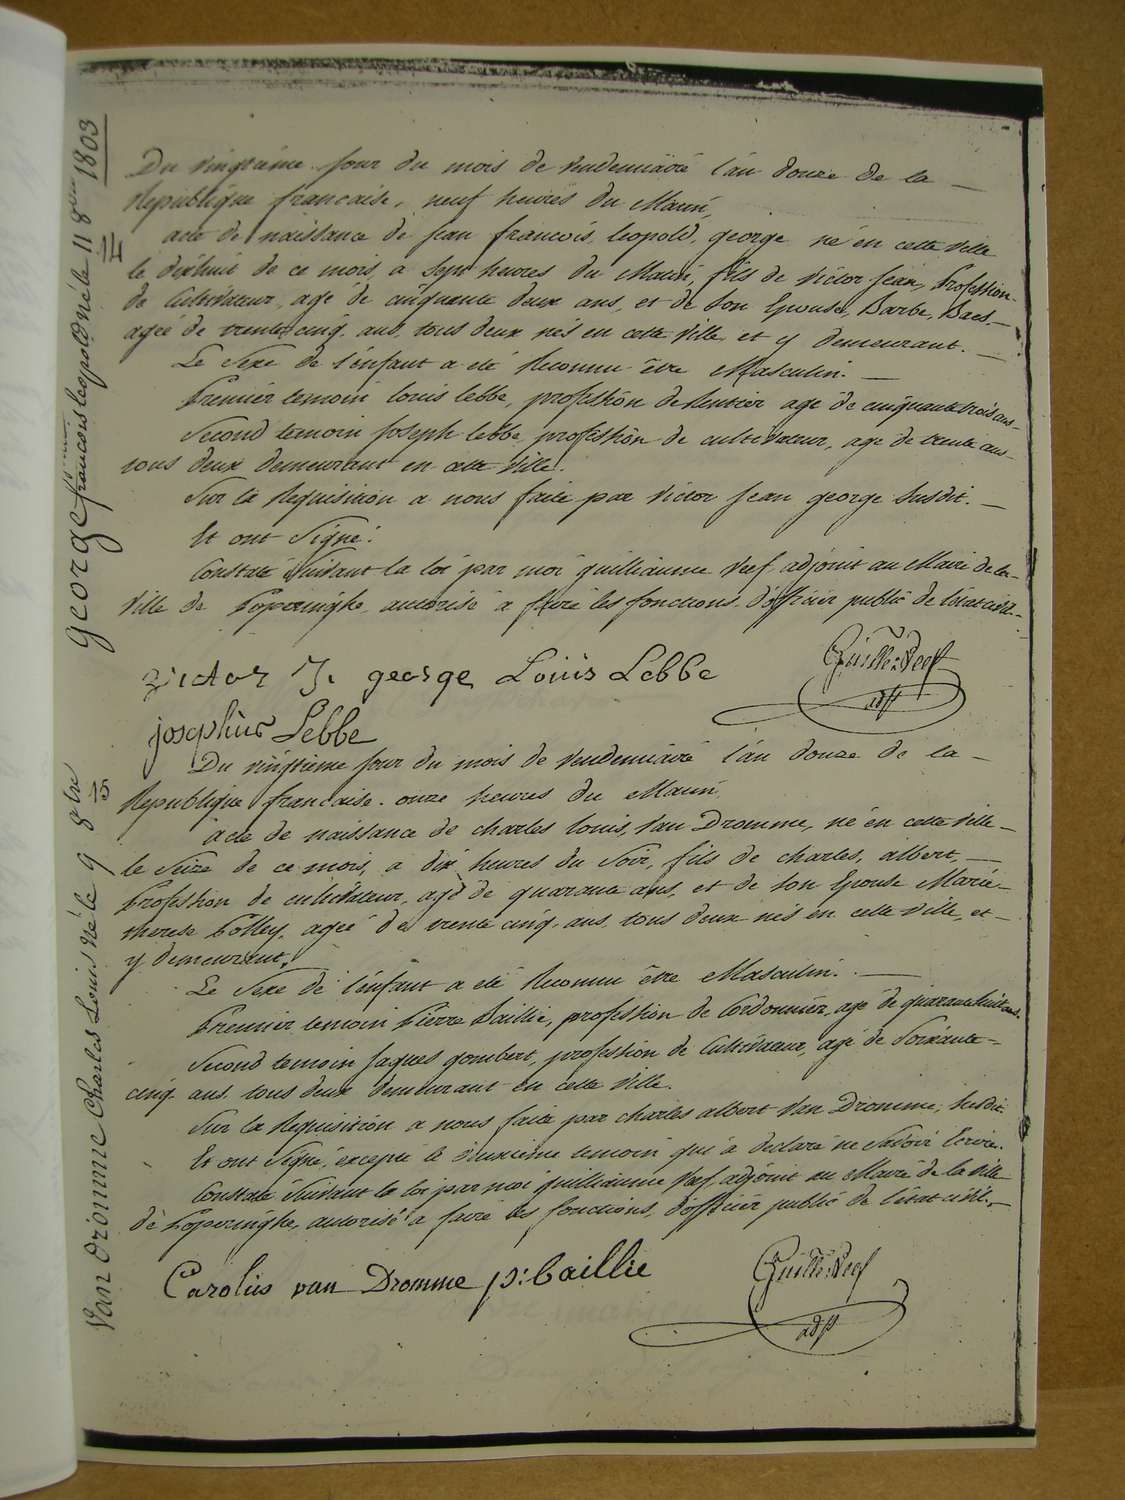 Du vingtième jour du mois de vendemiaire l'an douze de la
Republique francaise, neuf heures du Matin,
acte de naissance de jean francois leopold, george né en cette ville
le dixhuit de ce mois, a sept heures du Matin, fils de victor jean, Profession
de Cultivateur, agé de cinquante deux ans, et de son Epouse, Barbe, Baes,
agée de trente cinq ans, tous deux nés en cette ville, et y demeurant.
Le Sexe de l'enfant a eté Reconnu être Masculin.
Premier temoin louis lebbe, profession de Rentier agé de cinquante trois ans
Second temoin joseph lebbe, profession de cultivateur, agé de trente ans
tous deux demeurant en cette ville.
Sur la Requisition a nous faite par victor jean george susdit.
Et ont Signé.
Constaté Suivant la loi par moi guilliaume Veef adjoint au Maire de la
ville de Poperinghe, autorisé a faire les fonctions d'officier public de l'état civil.
victor J. george Louis Lebbe
Guille Veef
adjt
josephus Lebbe
Du vingtième jour du mois de vendemiaire l'an douze de la
Republique francaise. onze heures du Matin
acte de naissance de charles louis, Van Dromme, né en cette ville
le Seize de ce mois, a dix heures du Soir, fils de charles, albert,
Profession de cultivateur, agé de quarante ans, et de son Epouse Marie
therese Folley, agée de trente cinq ans, tous deux nés en cette ville, et
y demeurant.
Le Sexe de l'enfant a eté Reconnu être Masculin.
Premier temoin Pierre Baillie, profession de Cordonnier, agé de quarante huit ans.
Second temoin jaques gombert, profession de Cultivateur, agé de Soixante
cinq ans tous deux demeurant en cette ville.
Sur la Requisition a nous faite par charles albert Van Dromme, susdit.
Et ont Signé, excepté le deuxieme temoin qui a declaré ne Savoir Ecrire.
Constaté Suivant la loi par moi guilliaume Veef adjoint au Maire de la ville
de Poperinghe, autorisé a faire les fonctions, d'officier public de l'état civil.
Carolus van Dromme p: baillie
Guille Veef
adjt
george francois leopold né le 11 8bre 1803
14
Van Dromme Charles Louis Né le 9 8bre
15